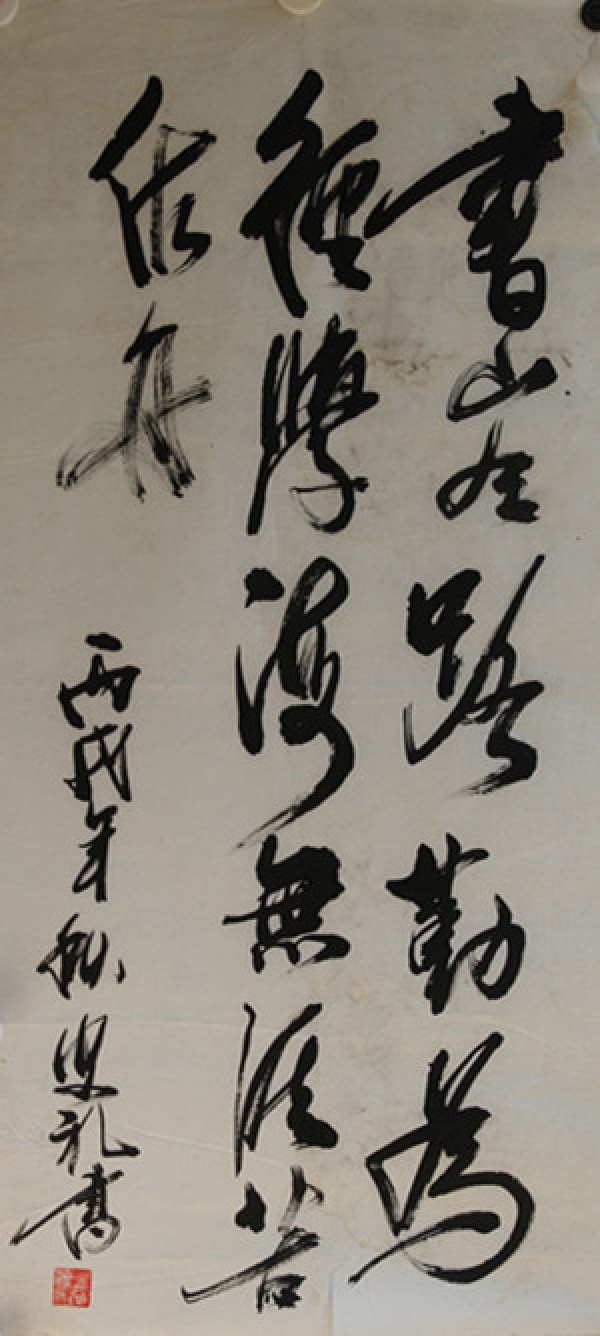 書山有路勤為
徑學海無涯苦
作舟
丙戌年 礼書